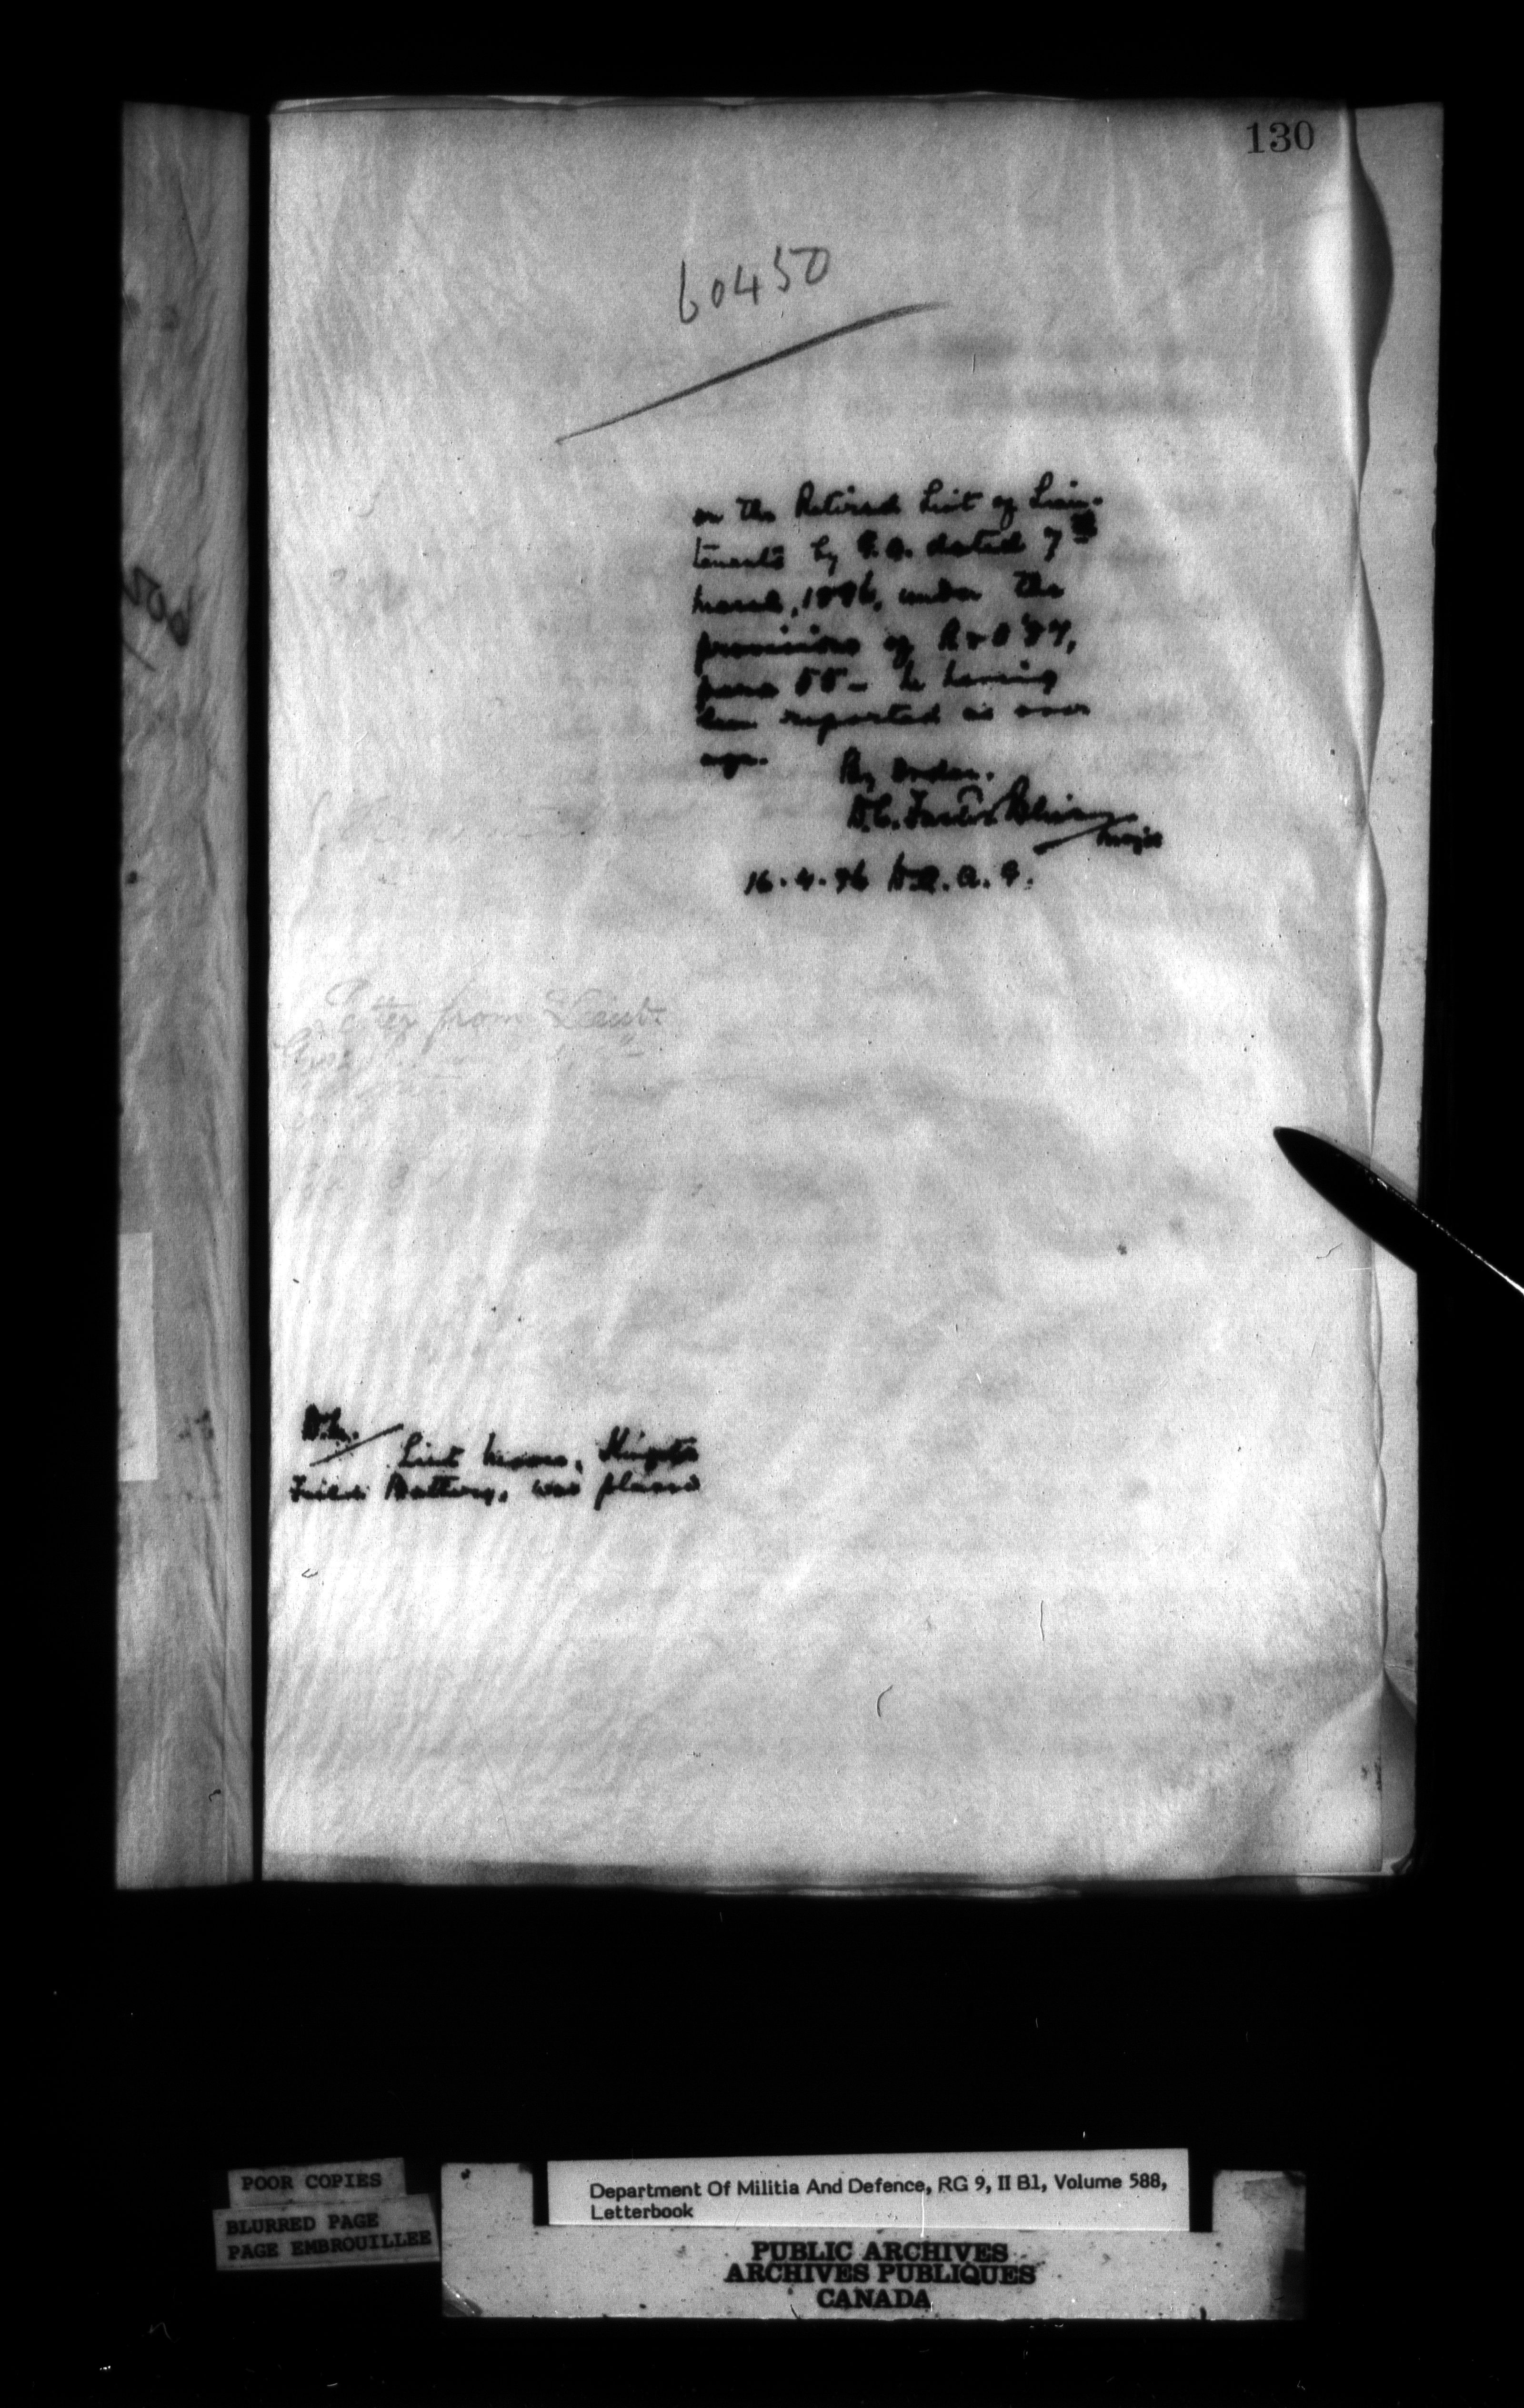 130
60450
on the Retired List of Lieu-
tenants by G.O. dated 7th
March, 1896, under the
provisions of R & O '87,
para 55 - he having
been reported as over
age.
By Order.
Major
16.4.96 D.A.A.G.
Letter from Lieut.
Lieut Moore, Kingston
Field Battery, was placed
POOR COPIES
BLURRED PAGE
PAGE EMBROUILLEE
Department Of Militia And Defence, RG 9, II B1, Volume 588,
Letterbook
PUBLIC ARCHIVES
ARCHIVES PUBLIQUES
CANADA